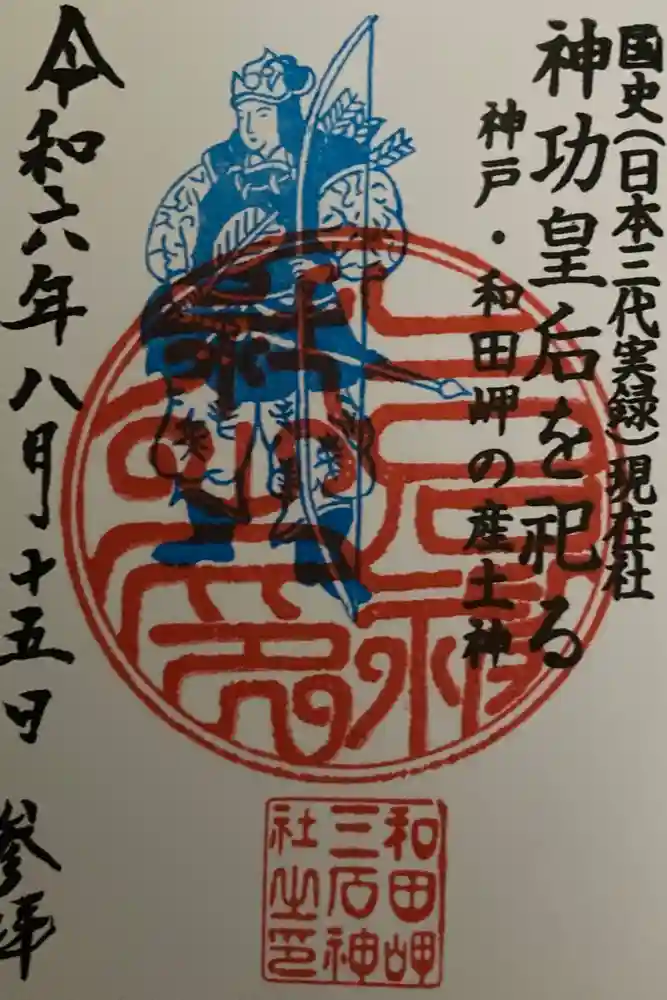 国史（日本三代実録）現在社
神功皇后を祀る
神戸・和田岬の産土神
三石神社之印
令和六年八月十五日 参拝
和田岬
三石神
社之印